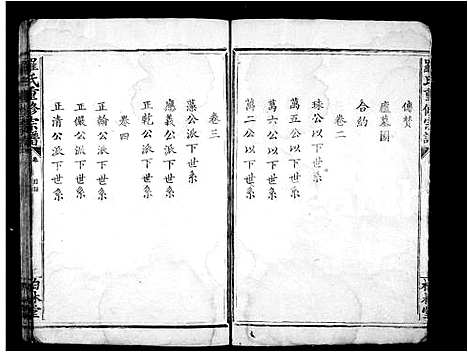 羅氏重修宗譜
傳贊
廬墓圖
合約
卷二
球公以下世系
萬五公以下世系
萬六公以下世系
萬二公以下世系
卷三
藻公派下世系
應義公派下世系
正乾公派下世系
卷四
正翰公派下世系
正儀公派下世系
正清公派下世系
羅氏重修宗譜
柏林堂